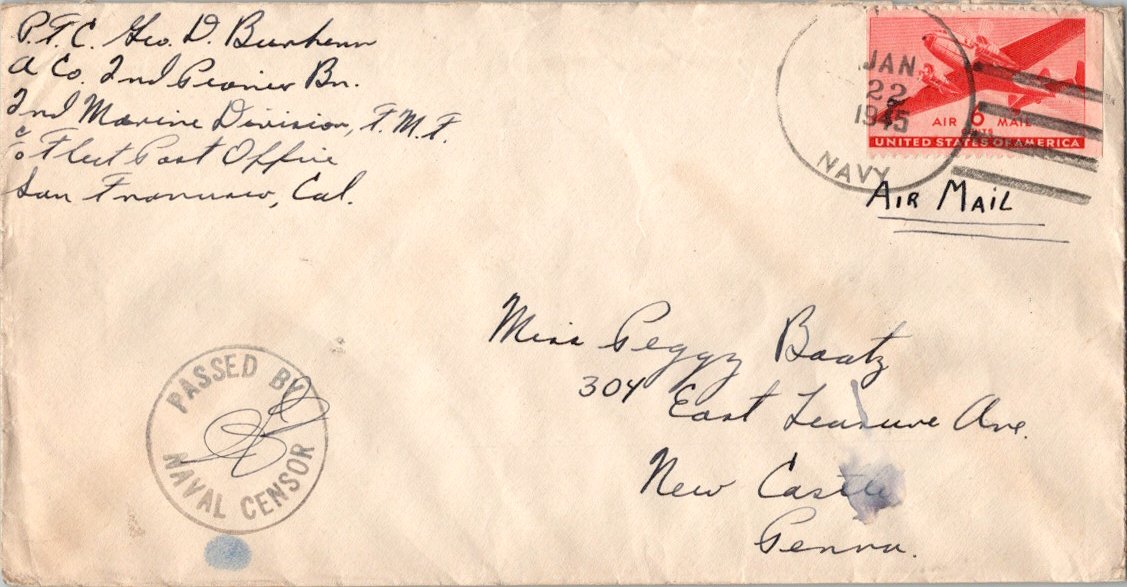 P.F.C. Geo. D. Burhenn
A Co. 2nd Pioneer Bn.
2nd Marine Division, F.M.F.
c/o Fleet Post Office
San Francisco, Cal.
JAN
22
1945
NAVY
AIR 6 MAIL
CENTS
UNITED STATES OF AMERICA
AIR MAIL
Miss Peggy Baatz
304 East Leasure Ave.
New Castle
Penna.
PASSED BY
NAVAL CENSOR